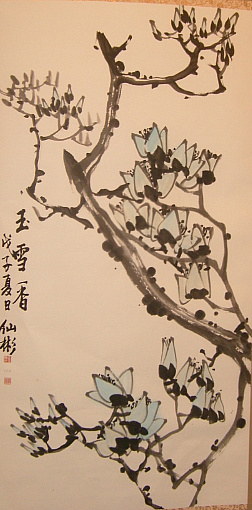 玉雪香
戊子夏日
仙彬